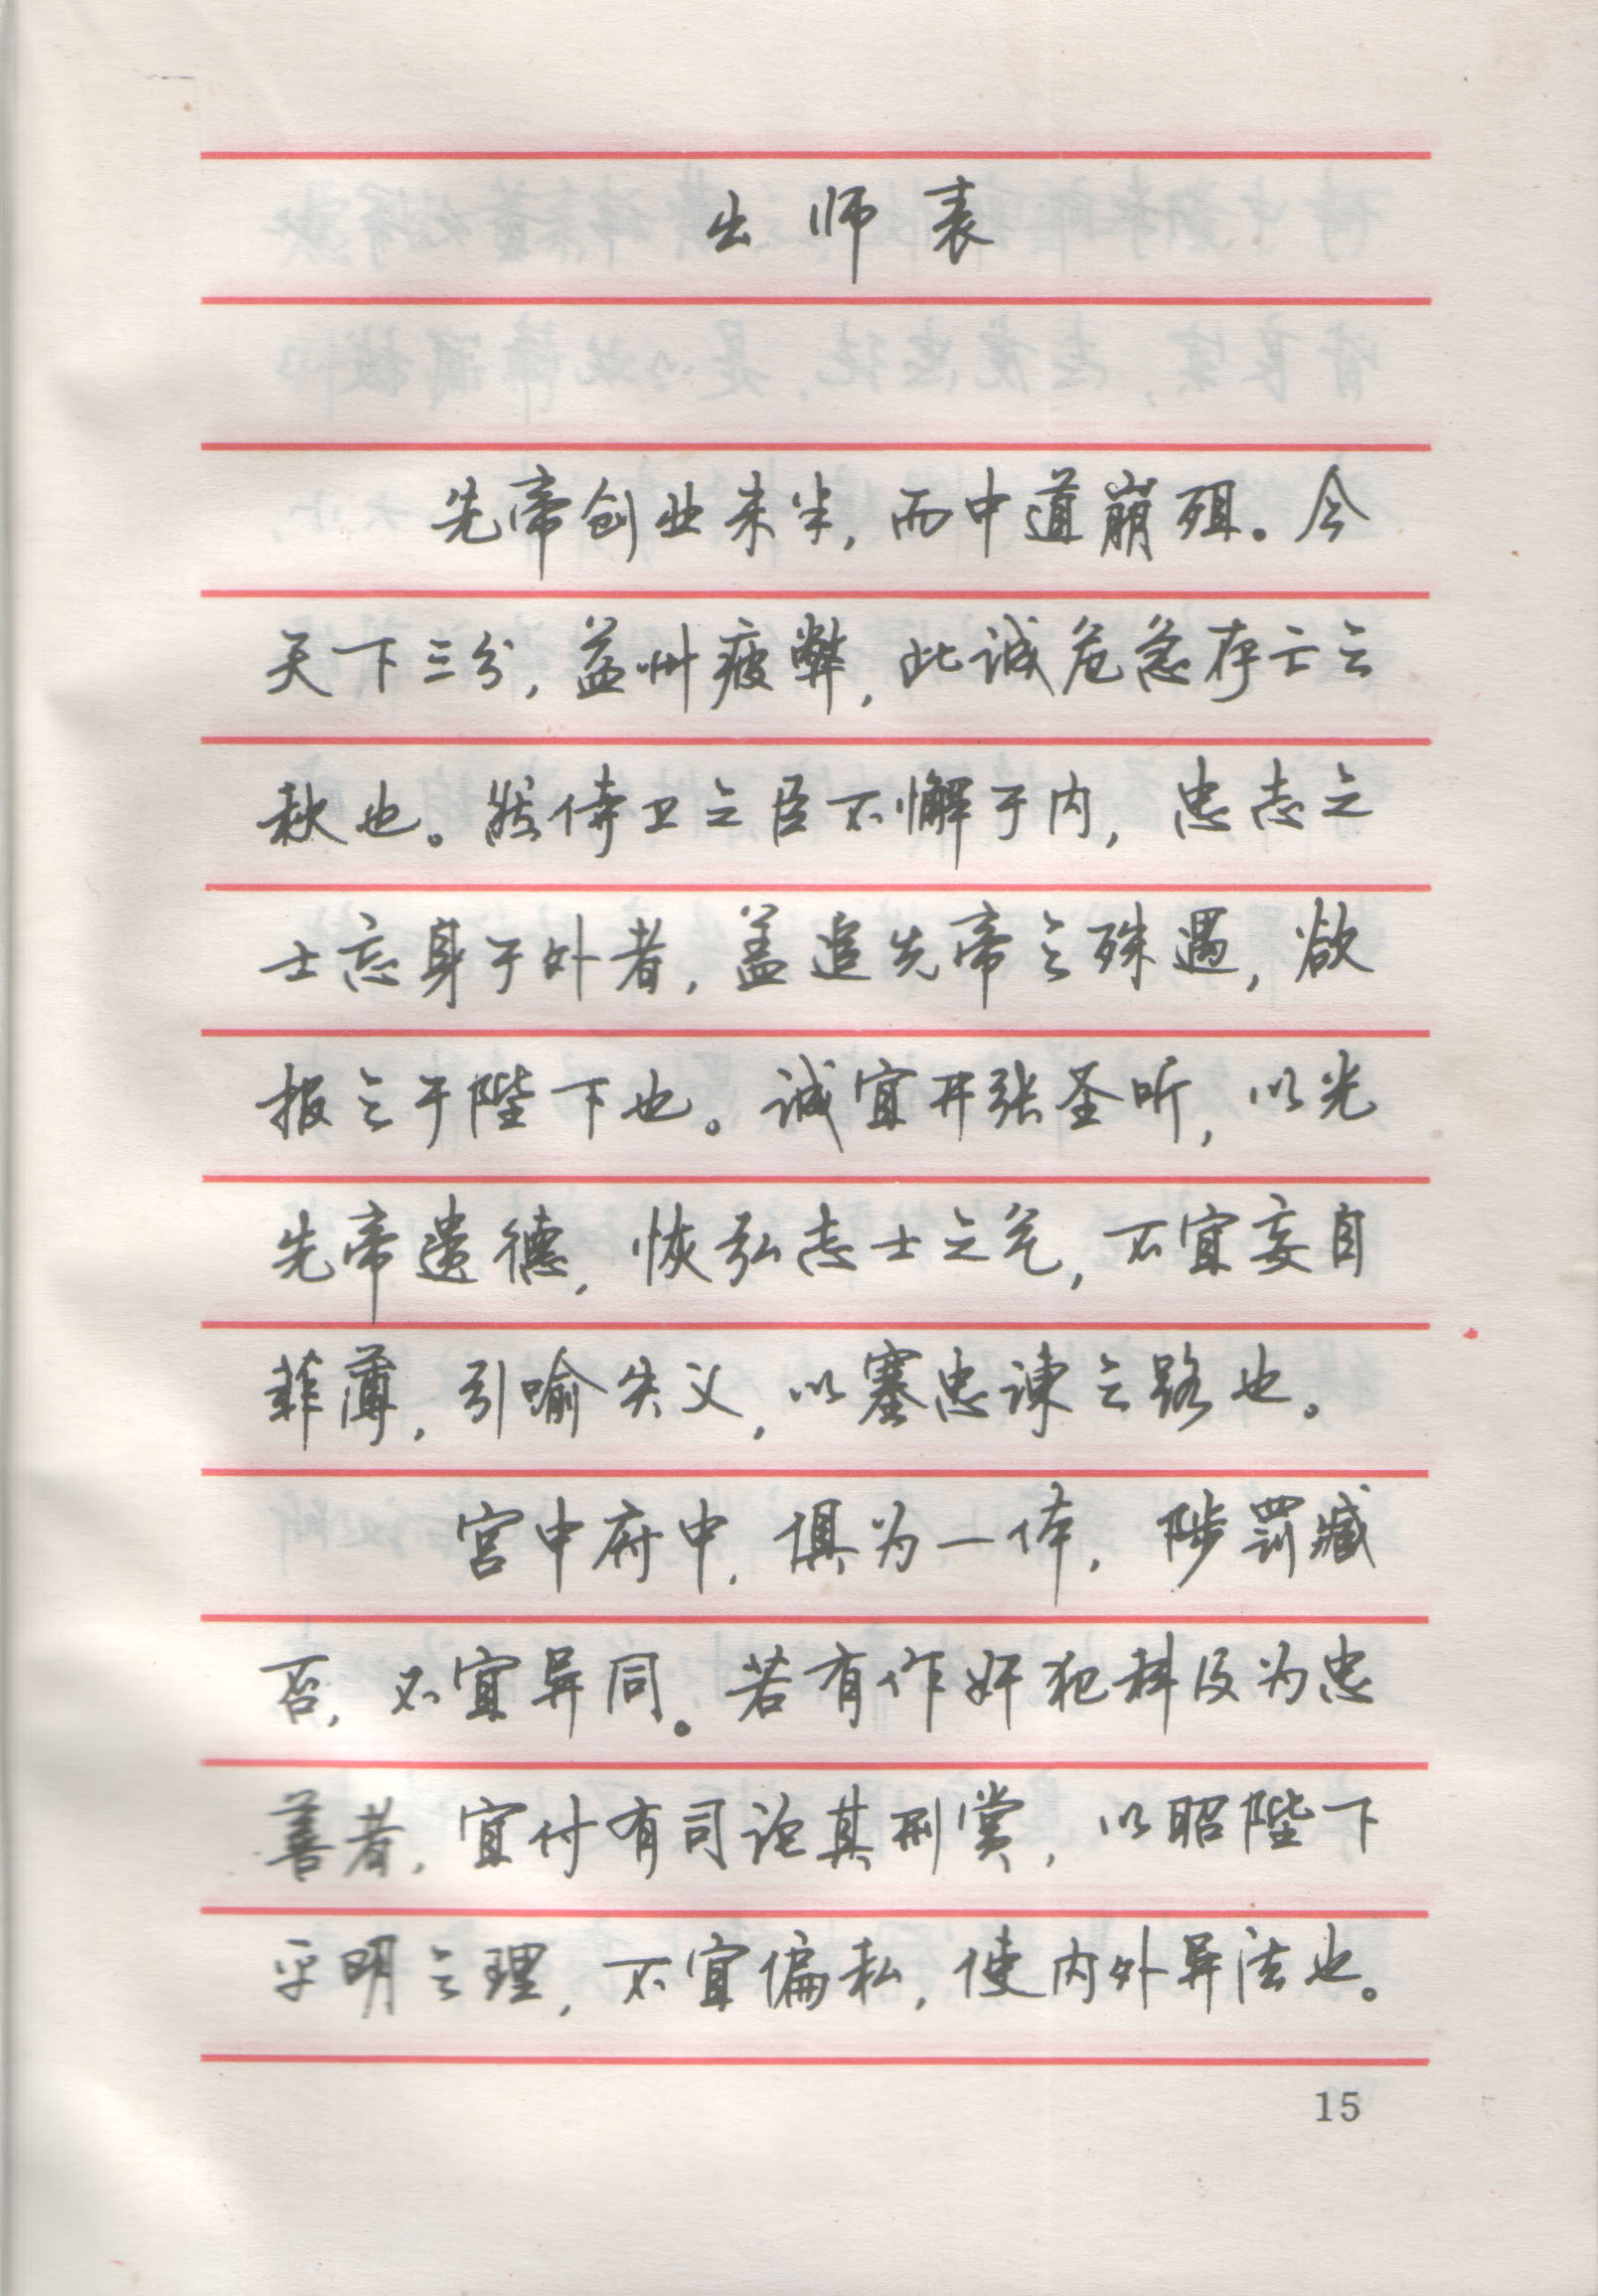 出师表
先帝创业未半，而中道崩殂。今
天下三分，益州疲弊，此诚危急存亡之
秋也。然侍卫之臣不懈于内，忠志之
士忘身于外者，盖追先帝之殊遇，欲
报之于陛下也。诚宜开张圣听，以光
先帝遗德，恢弘志士之气，不宜妄自
菲薄，引喻失义，以塞忠谏之路也。
宫中府中，俱为一体，陟罚臧
否，不宜异同。若有作奸犯科及为忠
善者，宜付有司论其刑赏，以昭陛下
平明之理，不宜偏私，使内外异法也。
15